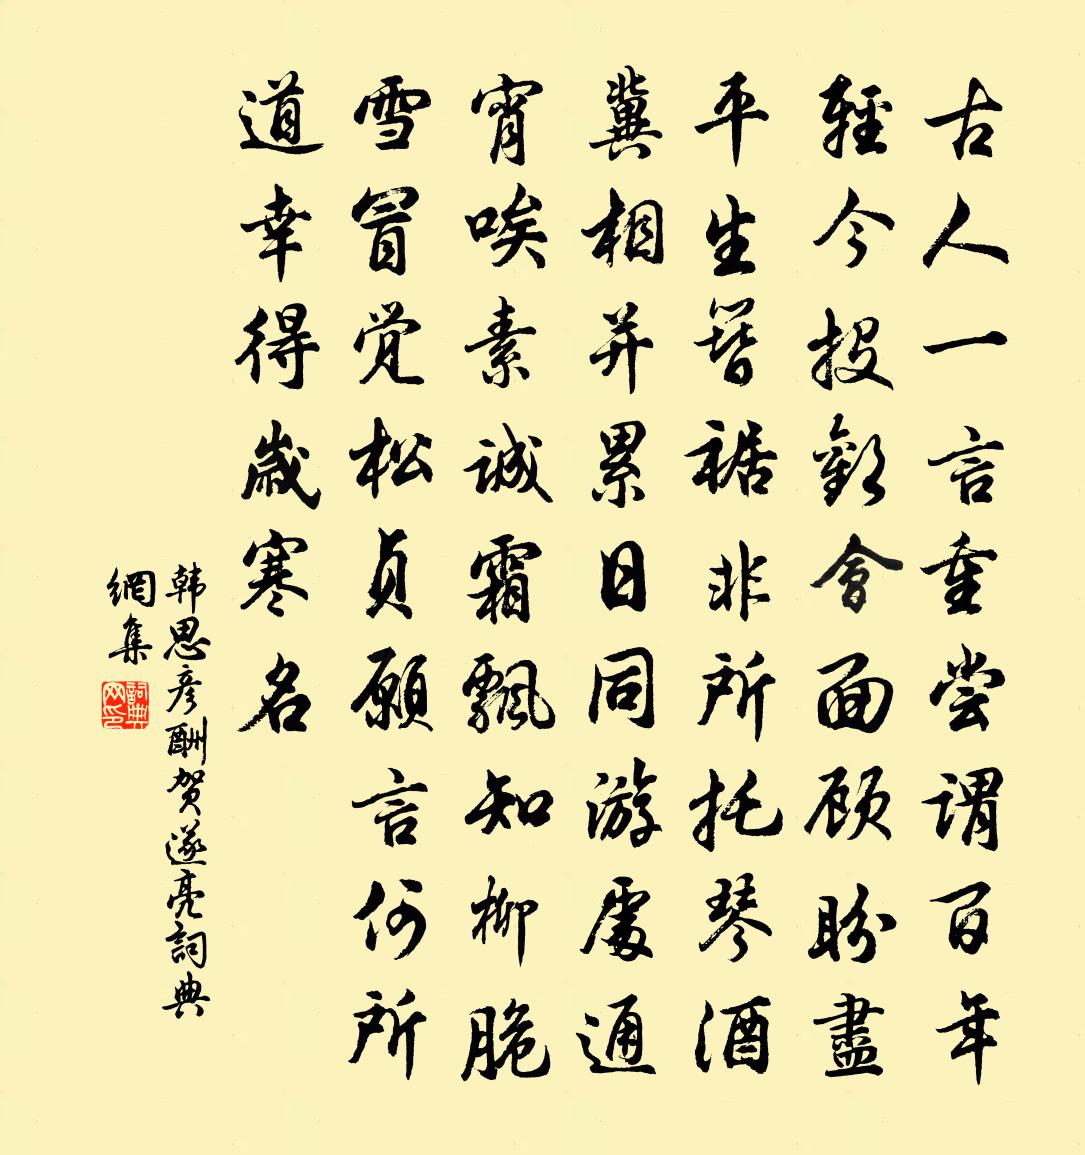 古人一言重尝谓百年
輕今投歡會面顾盼盡
平生簪裾非所托琴酒
冀相并累日同游處通
宵唉素诚霜飄知柳脆
雪冒觉松貞願言何所
道幸得歲寒名
韩思彦酬贺遂亮詞典
網集
詞典